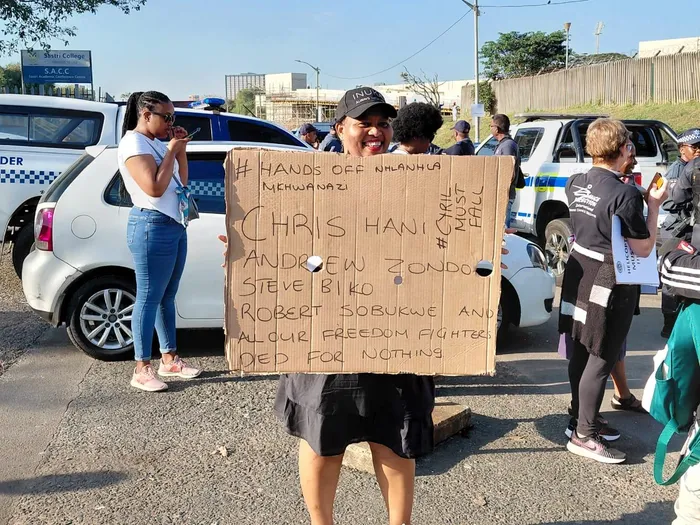 # HANDS OFF NHLANHLA
MKHWANAZI
# CYRIL
MUST
FALL
CHRIS HANI
ANDREW ZONDO
STEVE BIKO
ROBERT SOBUKWE AND
ALL OUR FREEDOM FIGHTERS
DIED FOR NOTHING
Sastri College
S.A.C.C
DER